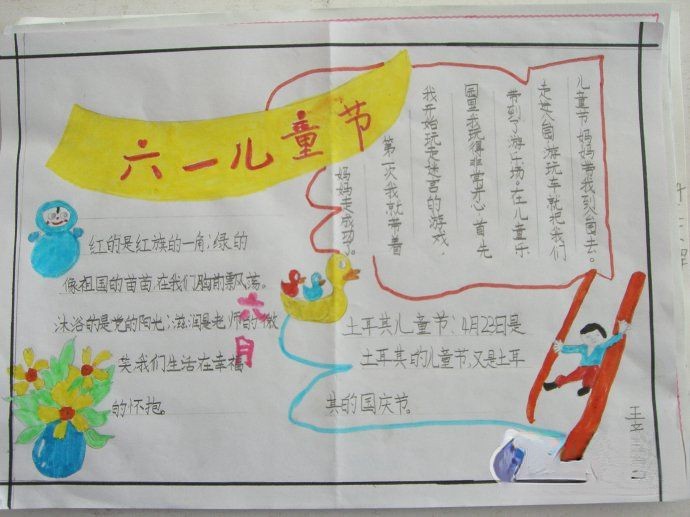 六一儿童节
儿童节妈妈带我到公园去。
走进公园游玩车就把我们
带到了游乐场。在儿童乐
园里我玩得非常开心首先
我开始玩走迷宫的游戏,
第一次我就带着
妈妈走成功了。
红的是红旗的一角;绿的
像祖国的苗苗,在我们胸前飘荡。
沐浴的是党的阳光;滋润是老师的微
笑,我们生活在幸福
的怀抱。
六月
土耳其儿童节:4月23日是
土耳其的儿童节,又是土耳
其的国庆节。